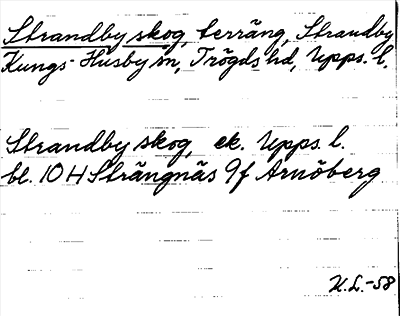 Strandby skog, terräng, Strandby
Kungs-Husby sn, Trögds hd, Upps. l.
Strandby skog, ek. Upps. l.
bl. 10 H Strängnäs 9f Arnöberg
U.L.-58